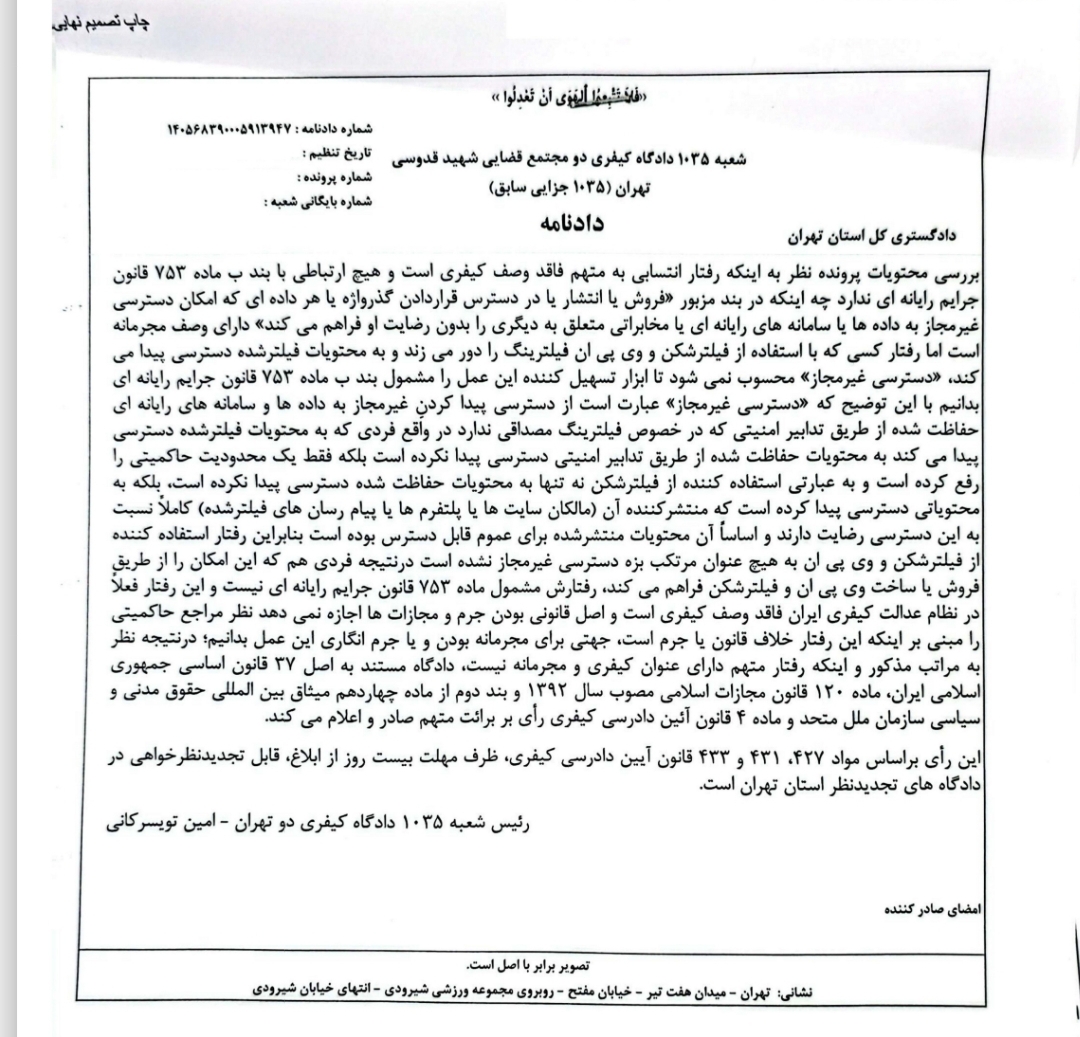 چاپ تصمیم نهایی
«فَلَا تَتَّبِعُوا الْهَوَى أَنْ تَعْدِلُوا»
شماره دادنامه : ۱۴۰۵۶۸۳۹۰۰۰۵۹۱۳۹۴۷
تاریخ تنظیم :
شماره پرونده :
شماره بایگانی شعبه :
شعبه ۱۰۳۵ دادگاه کیفری دو مجتمع قضایی شهید قدوسی
تهران (۱۰۳۵ جزایی سابق)
دادنامه
دادگستری کل استان تهران
بررسی محتویات پرونده نظر به اینکه رفتار انتسابی به متهم فاقد وصف کیفری است و هیچ ارتباطی با بند ب ماده ۷۵۳ قانون
جرایم رایانه ای ندارد چه اینکه در بند مزبور «فروش یا انتشار یا در دسترس قراردادن گذرواژه یا هر داده ای که امکان دسترسی
غیرمجاز به داده ها یا سامانه های رایانه ای یا مخابراتی متعلق به دیگری را بدون رضایت او فراهم می کند» دارای وصف مجرمانه
است اما رفتار کسی که با استفاده از فیلترشکن و وی پی ان فیلترینگ را دور می زند و به محتویات فیلترشده دسترسی پیدا می
کند، «دسترسی غیرمجاز» محسوب نمی شود تا ابزار تسهیل کننده این عمل را مشمول بند ب ماده ۷۵۳ قانون جرایم رایانه ای
بدانیم با این توضیح که «دسترسی غیرمجاز» عبارت است از دسترسی پیدا کردنِ غیرمجاز به داده ها و سامانه های رایانه ای
حفاظت شده از طریق تدابیر امنیتی که در خصوص فیلترینگ مصداقی ندارد در واقع فردی که به محتویات فیلترشده دسترسی
پیدا می کند به محتویات حفاظت شده از طریق تدابیر امنیتی دسترسی پیدا نکرده است بلکه فقط یک محدودیت حاکمیتی را
رفع کرده است و به عبارتی استفاده کننده از فیلترشکن نه تنها به محتویات حفاظت شده دسترسی پیدا نکرده است، بلکه به
محتویاتی دسترسی پیدا کرده است که منتشرکننده آن (مالکان سایت ها یا پلتفرم ها یا پیام رسان های فیلترشده) کاملاً نسبت
به این دسترسی رضایت دارند و اساساً آن محتویات منتشرشده برای عموم قابل دسترس بوده است بنابراین رفتار استفاده کننده
از فیلترشکن و وی پی ان به هیچ عنوان مرتکب بزه دسترسی غیرمجاز نشده است درنتیجه فردی هم که این امکان را از طریقِ
فروش یا ساخت وی پی ان و فیلترشکن فراهم می کند، رفتارش مشمول ماده ۷۵۳ قانون جرایم رایانه ای نیست و این رفتار فعلاً
در نظام عدالت کیفری ایران فاقد وصف کیفری است و اصل قانونی بودن جرم و مجازات ها اجازه نمی دهد نظر مراجع حاکمیتی
را مبنی بر اینکه این رفتار خلاف قانون یا جرم است، جهتی برای مجرمانه بودن و یا جرم انگاری این عمل بدانیم؛ درنتیجه نظر
به مراتب مذکور و اینکه رفتار متهم دارای عنوان کیفری و مجرمانه نیست، دادگاه مستند به اصل ۳۷ قانون اساسی جمهوری
اسلامی ایران، ماده ۱۲۰ قانون مجازات اسلامی مصوب سال ۱۳۹۲ و بند دوم از ماده چهاردهم میثاق بین المللی حقوق مدنی و
سیاسی سازمان ملل متحد و ماده ۴ قانون آئین دادرسی کیفری رأی بر برائت متهم صادر و اعلام می کند.
این رأی براساس مواد ۴۲۷، ۴۳۱ و ۴۳۳ قانون آیین دادرسی کیفری، ظرف مهلت بیست روز از ابلاغ، قابل تجدیدنظرخواهی در
دادگاه های تجدیدنظر استان تهران است.
رئیس شعبه ۱۰۳۵ دادگاه کیفری دو تهران - امین تویسرکانی
امضای صادر کننده
تصویر برابر با اصل است.
نشانی: تهران - میدان هفت تیر - خیابان مفتح - روبروی مجموعه ورزشی شیرودی - انتهای خیابان شیرودی